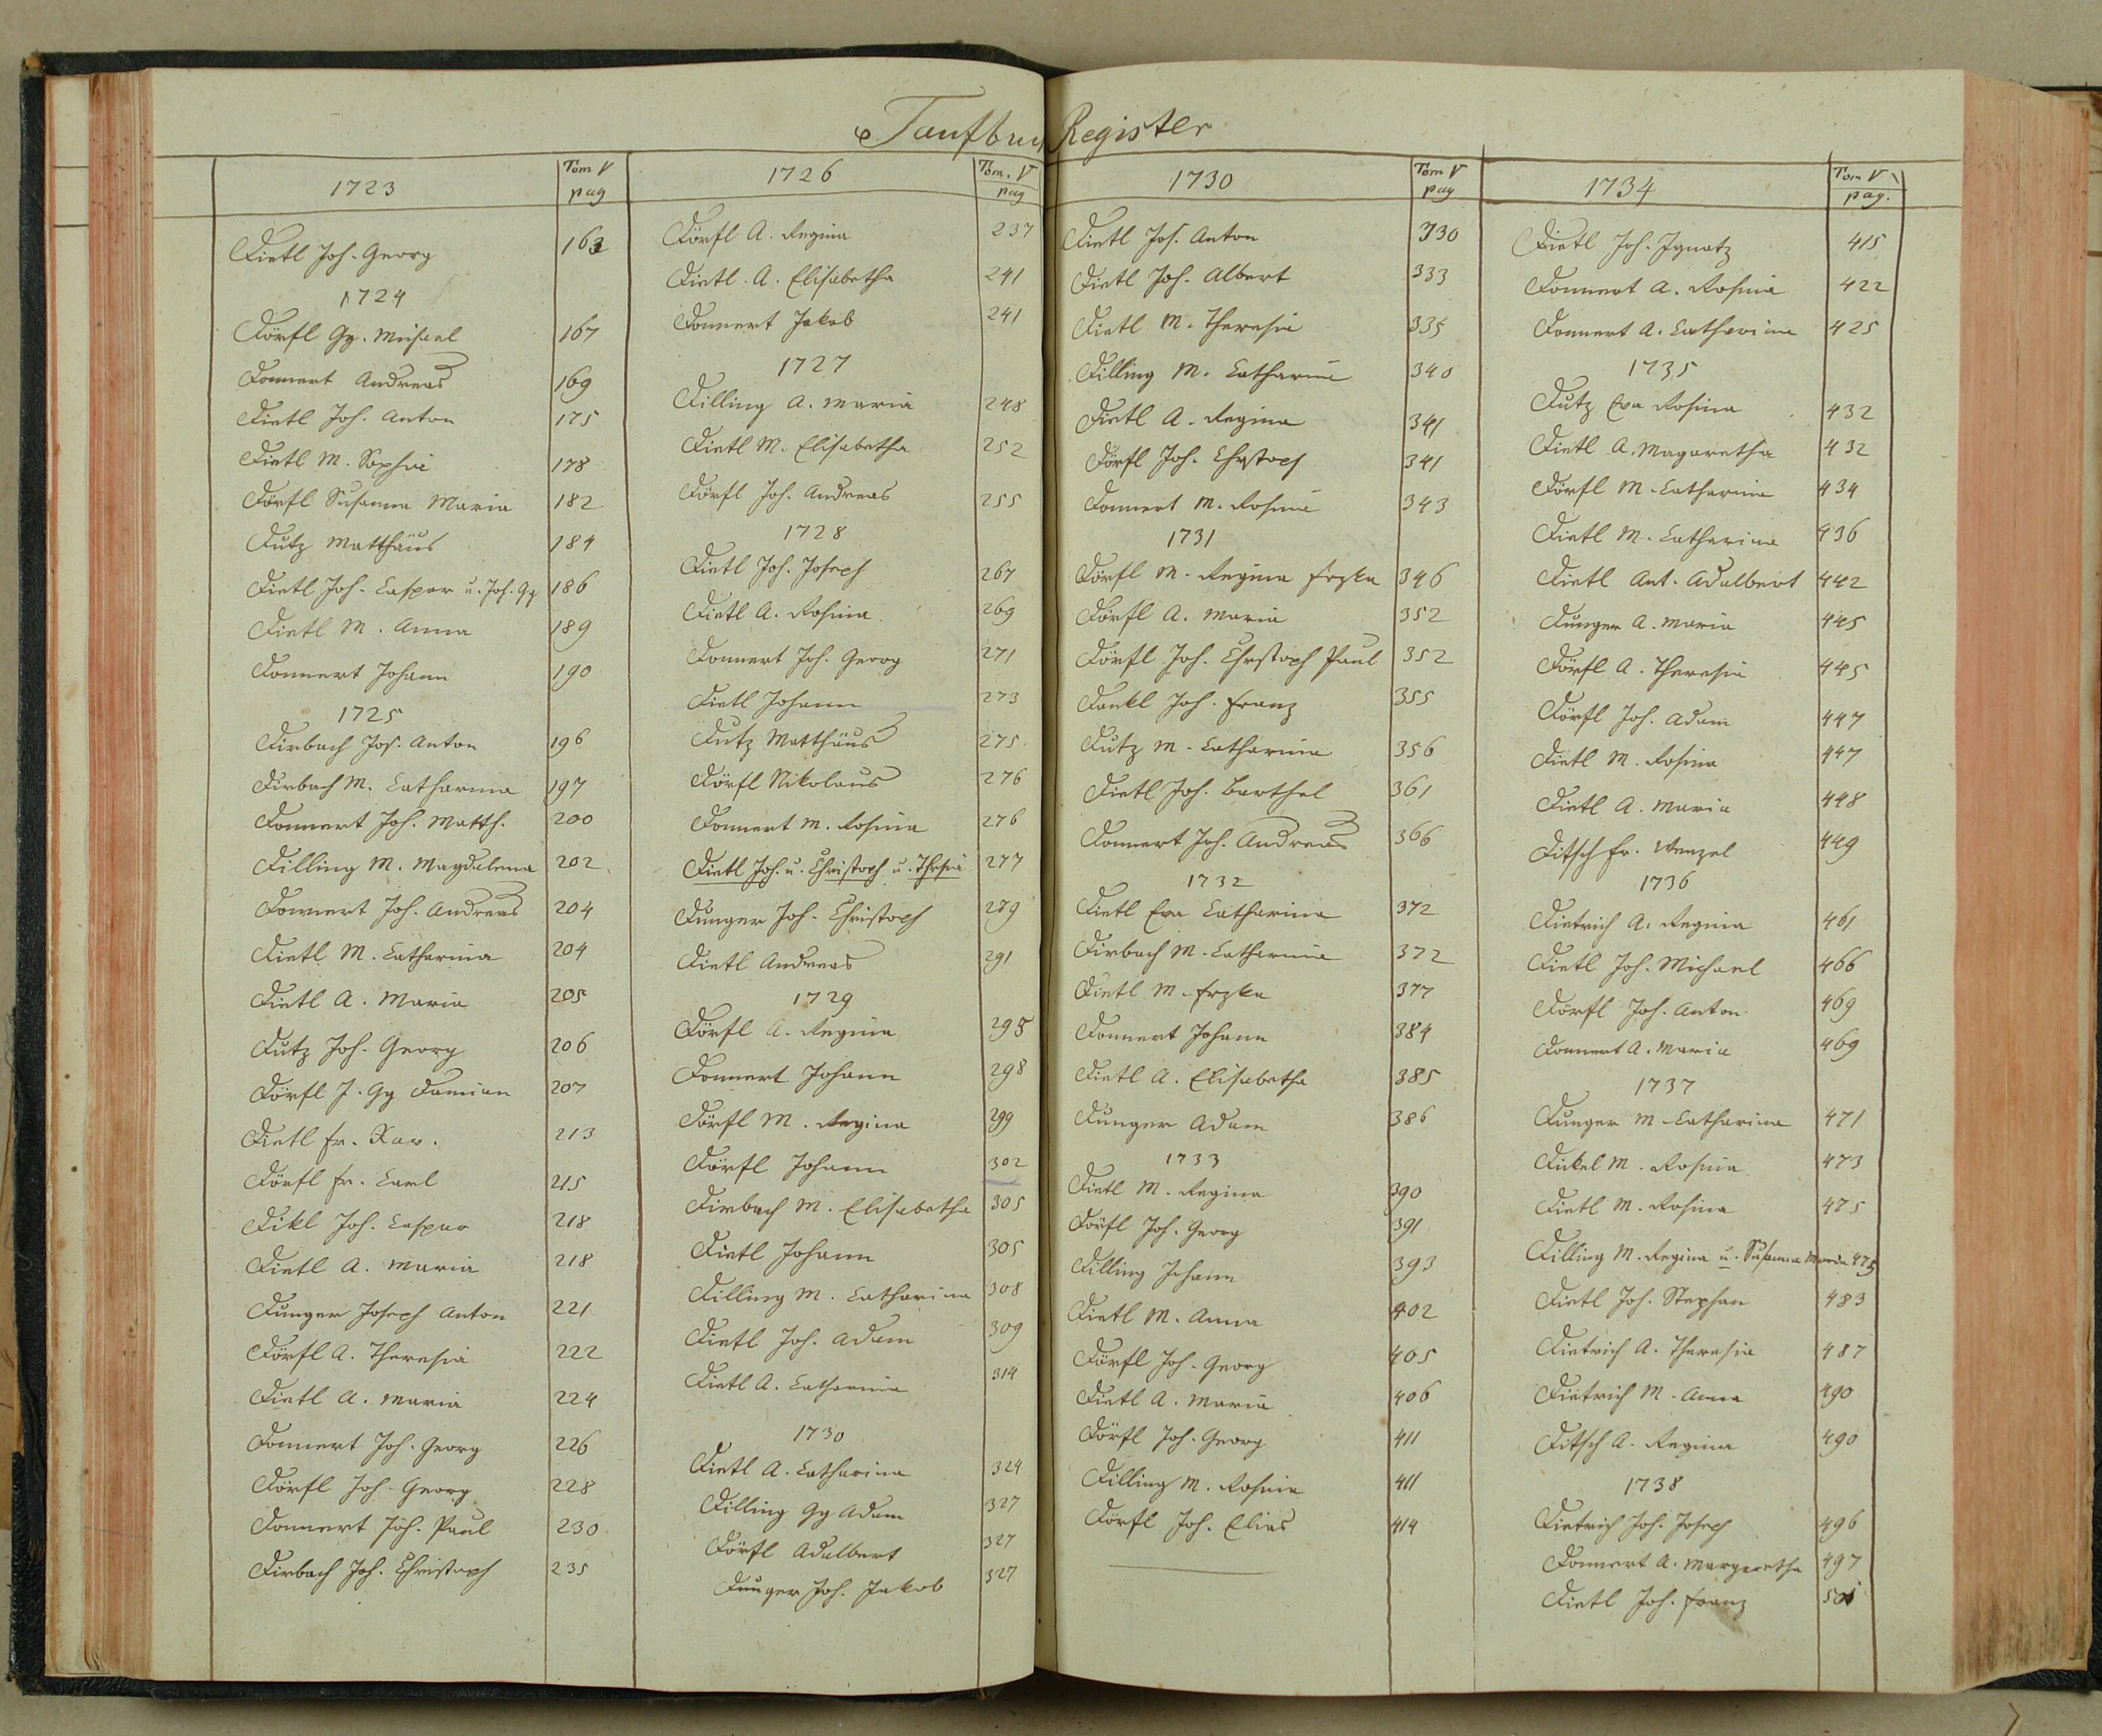 Taufbuch Register
1723 Tom V pag
Dietl Joh. Georg 163
1724
Dörfl Gg. Michael 167
Donnert Andreas 169
Dietl Joh. Anton 175
Dietl M. Sophie 178
Dörfl Susanna Maria 182
Dutz Matthäus 184
Dietl Joh. Caspar u. Joh. Gg 186
Dietl M. Anna 189
Donnert Johann 190
1725
Dirbach Jos. Anton 196
Dirbach M. Catharina 197
Donnert Joh. Matth. 200
Dilling M. Magdalena 202
Donnert Joh. Andreas 204
Dietl M. Catharina 204
Dietl A. Maria 205
Dutz Joh. Georg 206
Dörfl J. Gg Damian 207
Dietl Fr. Xav. 213
Dörfl Fr. Carl 215
Dikl Joh. Caspar 218
Dietl A. Maria 218
Dunger Joseph Anton 221
Dörfl A. Theresia 222
Dietl A. Maria 224
Donnert Joh. Georg 226
Dörfl Joh. Georg 228
Donnert Joh. Paul 230
Dirbach Joh. Christoph 235
1726 Tom. V pag
Dörfl A. Regina 237
Dietl A. Elisabetha 241
Donnert Jakob 241
1727
Dilling A. Maria 248
Dietl M. Elisabetha 252
Dörfl Joh. Andreas 255
1728
Dietl Joh. Joseph 267
Dietl A. Rosina 269
Donnert Joh. Georg 271
Dietl Johann 273
Dutz Matthäus 275
Dörfl Nikolaus 276
Donnert M. Rosina 276
Dietl Joh. u. Christoph u. Thresia 277
Dunger Joh. Christoph 279
Dietl Andreas 291
1729
Dörfl A. Regina 295
Donnert Johann 298
Dörfl M. Regina 299
Dörfl Johann 302
Dirbach M. Elisabetha 305
Dietl Johann 305
Dilling M. Catharina 308
Dietl Joh. Adam 309
Dietl A. Catharina 314
1730
Dietl A. Catharina 324
Dilling Gg Adam 327
Dörfl Adalbert 327
Dunger Joh. Jakob 327
1730 Tom V pag
Dietl Jos. Anton 330
Dietl Joh. Albert 333
Dietl M. Theresia 335
Dilling M. Catharina 340
Dietl A. Regina 341
Dörfl Joh. Chrstoph 341
Donnert M. Rosina 343
1731
Dörfl M. Regina Frzka 346
Dörfl A. Maria 352
Dörfl Joh. Chrstoph Paul 352
Dankl Joh. Franz 355
Dutz M. Catharina 356
Dietl Joh. Barthel 361
Donnert Joh. Andreas 366
1732
Dietl Eva Catharina 372
Dirbach M. Catharina 372
Dietl M. Frzka 377
Donnert Johann 384
Dietl A. Elisabetha 385
Dunger Adam 386
1733
Dietl M. Regina 390
Dörfl Joh. Georg 391
Dilling Johann 393
Dietl M. Anna 402
Dörfl Joh. Georg 405
Dietl A. Maria 406
Dörfl Joh. Georg 411
Dilling M. Rosina 411
Dörfl Joh. Elias 414
1734 Tom V pag.
Dietl Joh. Ignatz 415
Donnert A. Rosina 422
Donnert A. Catharina 425
1735
Dutz Eva Rosina 432
Dietl A. Magaretha 432
Dörfl M. Catharina 434
Dietl M. Catharina 436
Dietl Ant. Adalbert 442
Dunger A. Maria 445
Dörfl A. Theresia 445
Dörfl Joh. Adam 447
Dietl M. Rosina 447
Dietl A. Maria 448
Ditsch Fr. Wenzel 449
1736
Dietrich A. Regina 461
Dietl Joh. Michael 466
Dörfl Joh. Anton 469
Donnert A. Maria 469
1737
Dunger M. Catharina 471
Dickel M. Rosina 473
Dietl M. Rosina 475
Dilling M. Regina u. Susanna Maria 475
Dietl Joh. Stephan 483
Dietrich A. Theresia 487
Dietrich M. Anna 490
Ditsch A. Regina 490
1738
Dietrich Joh. Joseph 496
Donnert A. Margaretha 497
Dietl Joh. Franz